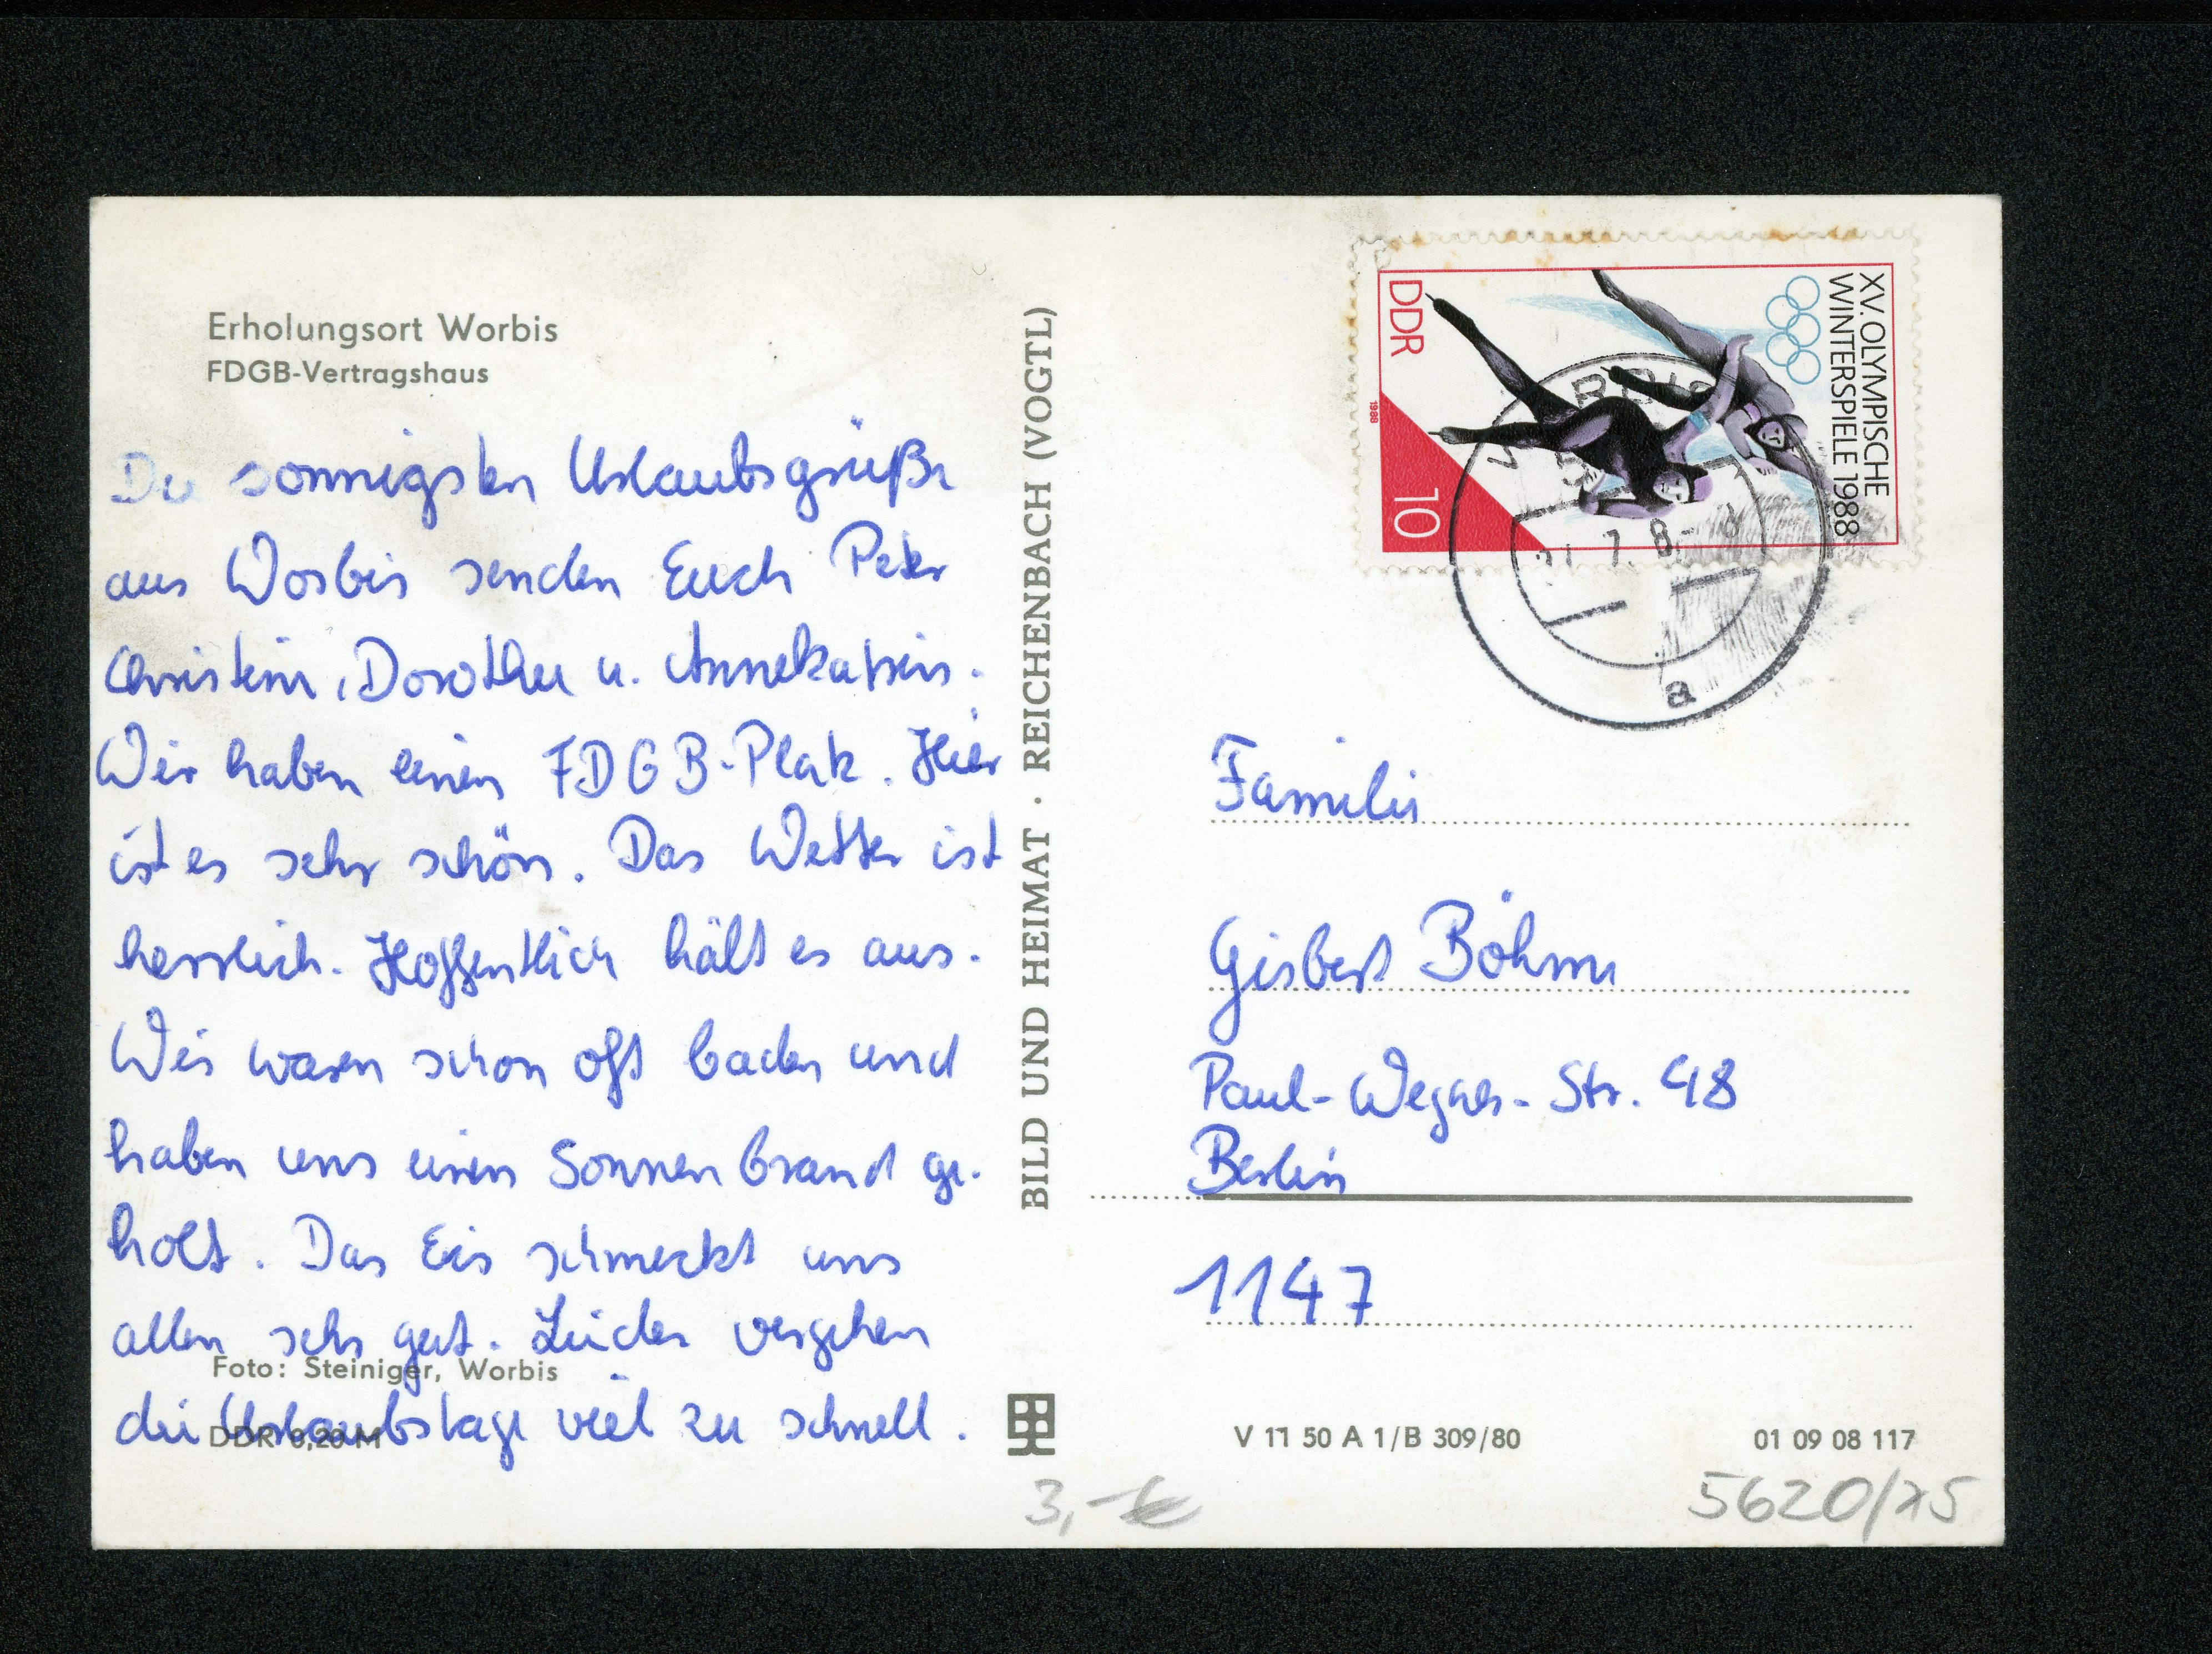 Erholungsort Worbis
FDGB-Vertragshaus
Die sonnigsten Urlaubsgrüße
aus Worbis senden Euch Peter
Christein, Dorothee u. Annekatrein.
Wir haben einen FDGB-Platz. Hier
ist es sehr schön. Das Wetter ist
herrlich. Hoffentlich hält es aus.
Wir waren schon oft baden und
haben uns einen Sonnenbrand ge-
holt. Das Eis schmeckt uns
allen sehr gut. Leider vergehen
die Urlaubstage viel zu schnell.
Foto: Steiniger, Worbis
DDR 0,20 M
BILD UND HEIMAT · REICHENBACH (VOGTL)
XV. OLYMPISCHE
WINTERSPIELE 1988
DDR
10
1988
a
Familie
Gisbert Böhm
Paul-Wegner-Str. 48
Berlin
1147
V 11 50 A 1/B 309/80
01 09 08 117
3,-€
5620/75